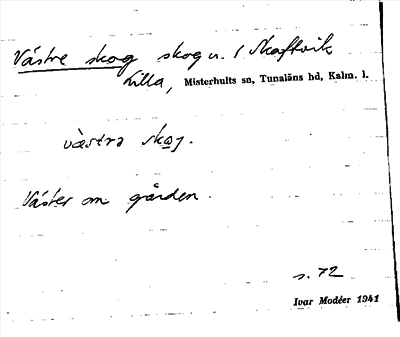 Västre skog skog u. / Skaftvik
Lilla, Misterhults sn, Tunaläns hd, Kalm. l.
vä̀stra skog.
Väster om gården.
s. 72
Ivar Modéer 1941